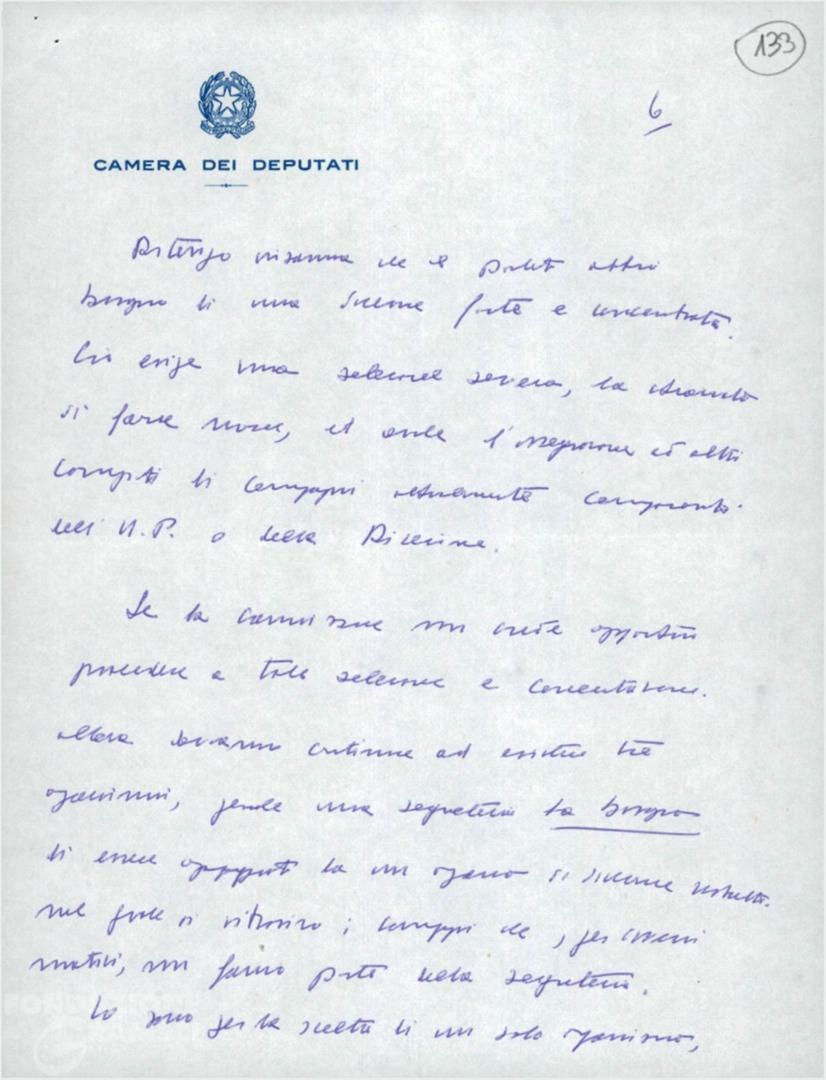 133
6
CAMERA DEI DEPUTATI
Ritengo insomma che il partito abbia
bisogno di una direzione forte e concentrata.
Ciò esige una selezione severa, la chiamata
di forze nuove, ed anche l'assegnazione ad altri
compiti di compagni attualmente componenti
dell'U.P. o della Direzione.
Se la commissione non crede opportuno
procedere a tale selezione e concentrazione.
allora dovranno continuare ad esistere tre
organismi, perché una segreteria ha bisogno
di essere appoggiata da un organo di direzione ristretto.
nel quale si ritrovino i compagni che, per diversi
motivi, non fanno parte della segreteria.
Io sono per la scelta di un solo organismo,